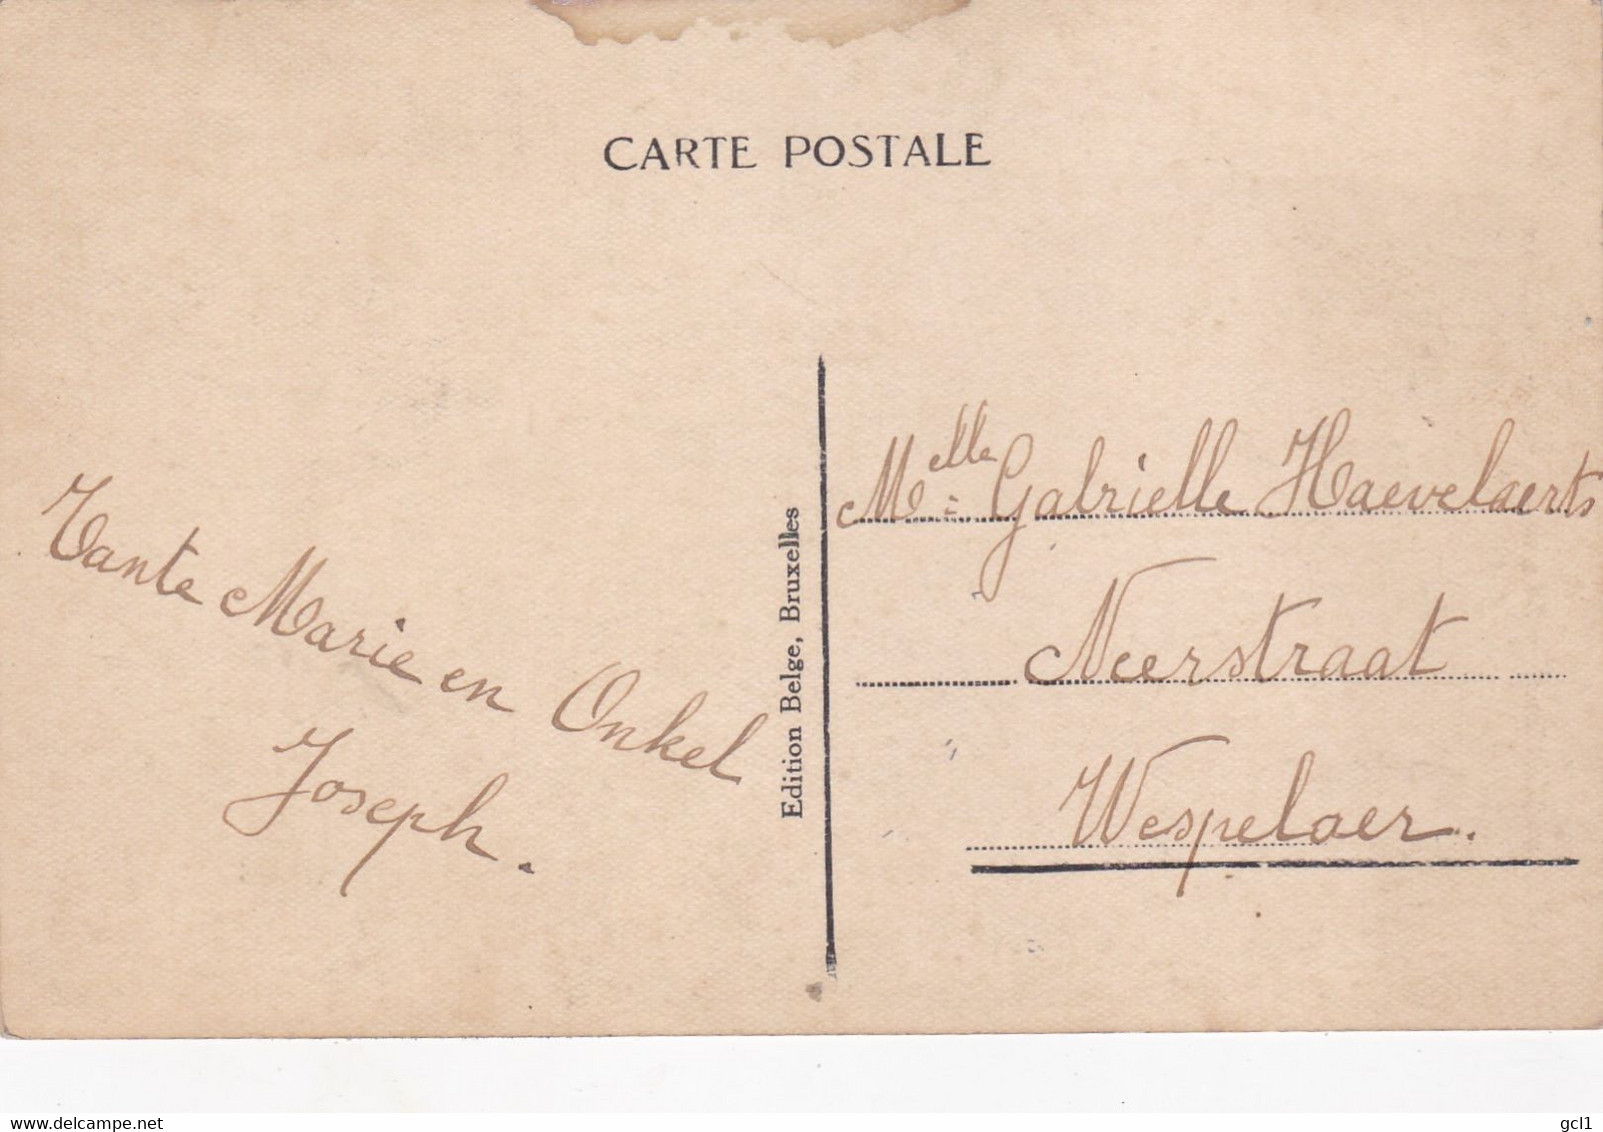 CARTE POSTALE
Tante Marie en Onkel
Joseph.
Edition Belge, Bruxelles
Melle: Gabrielle Haevelaerts
Neerstraat
Wespelaer.
www.delcampe.net
gcl1